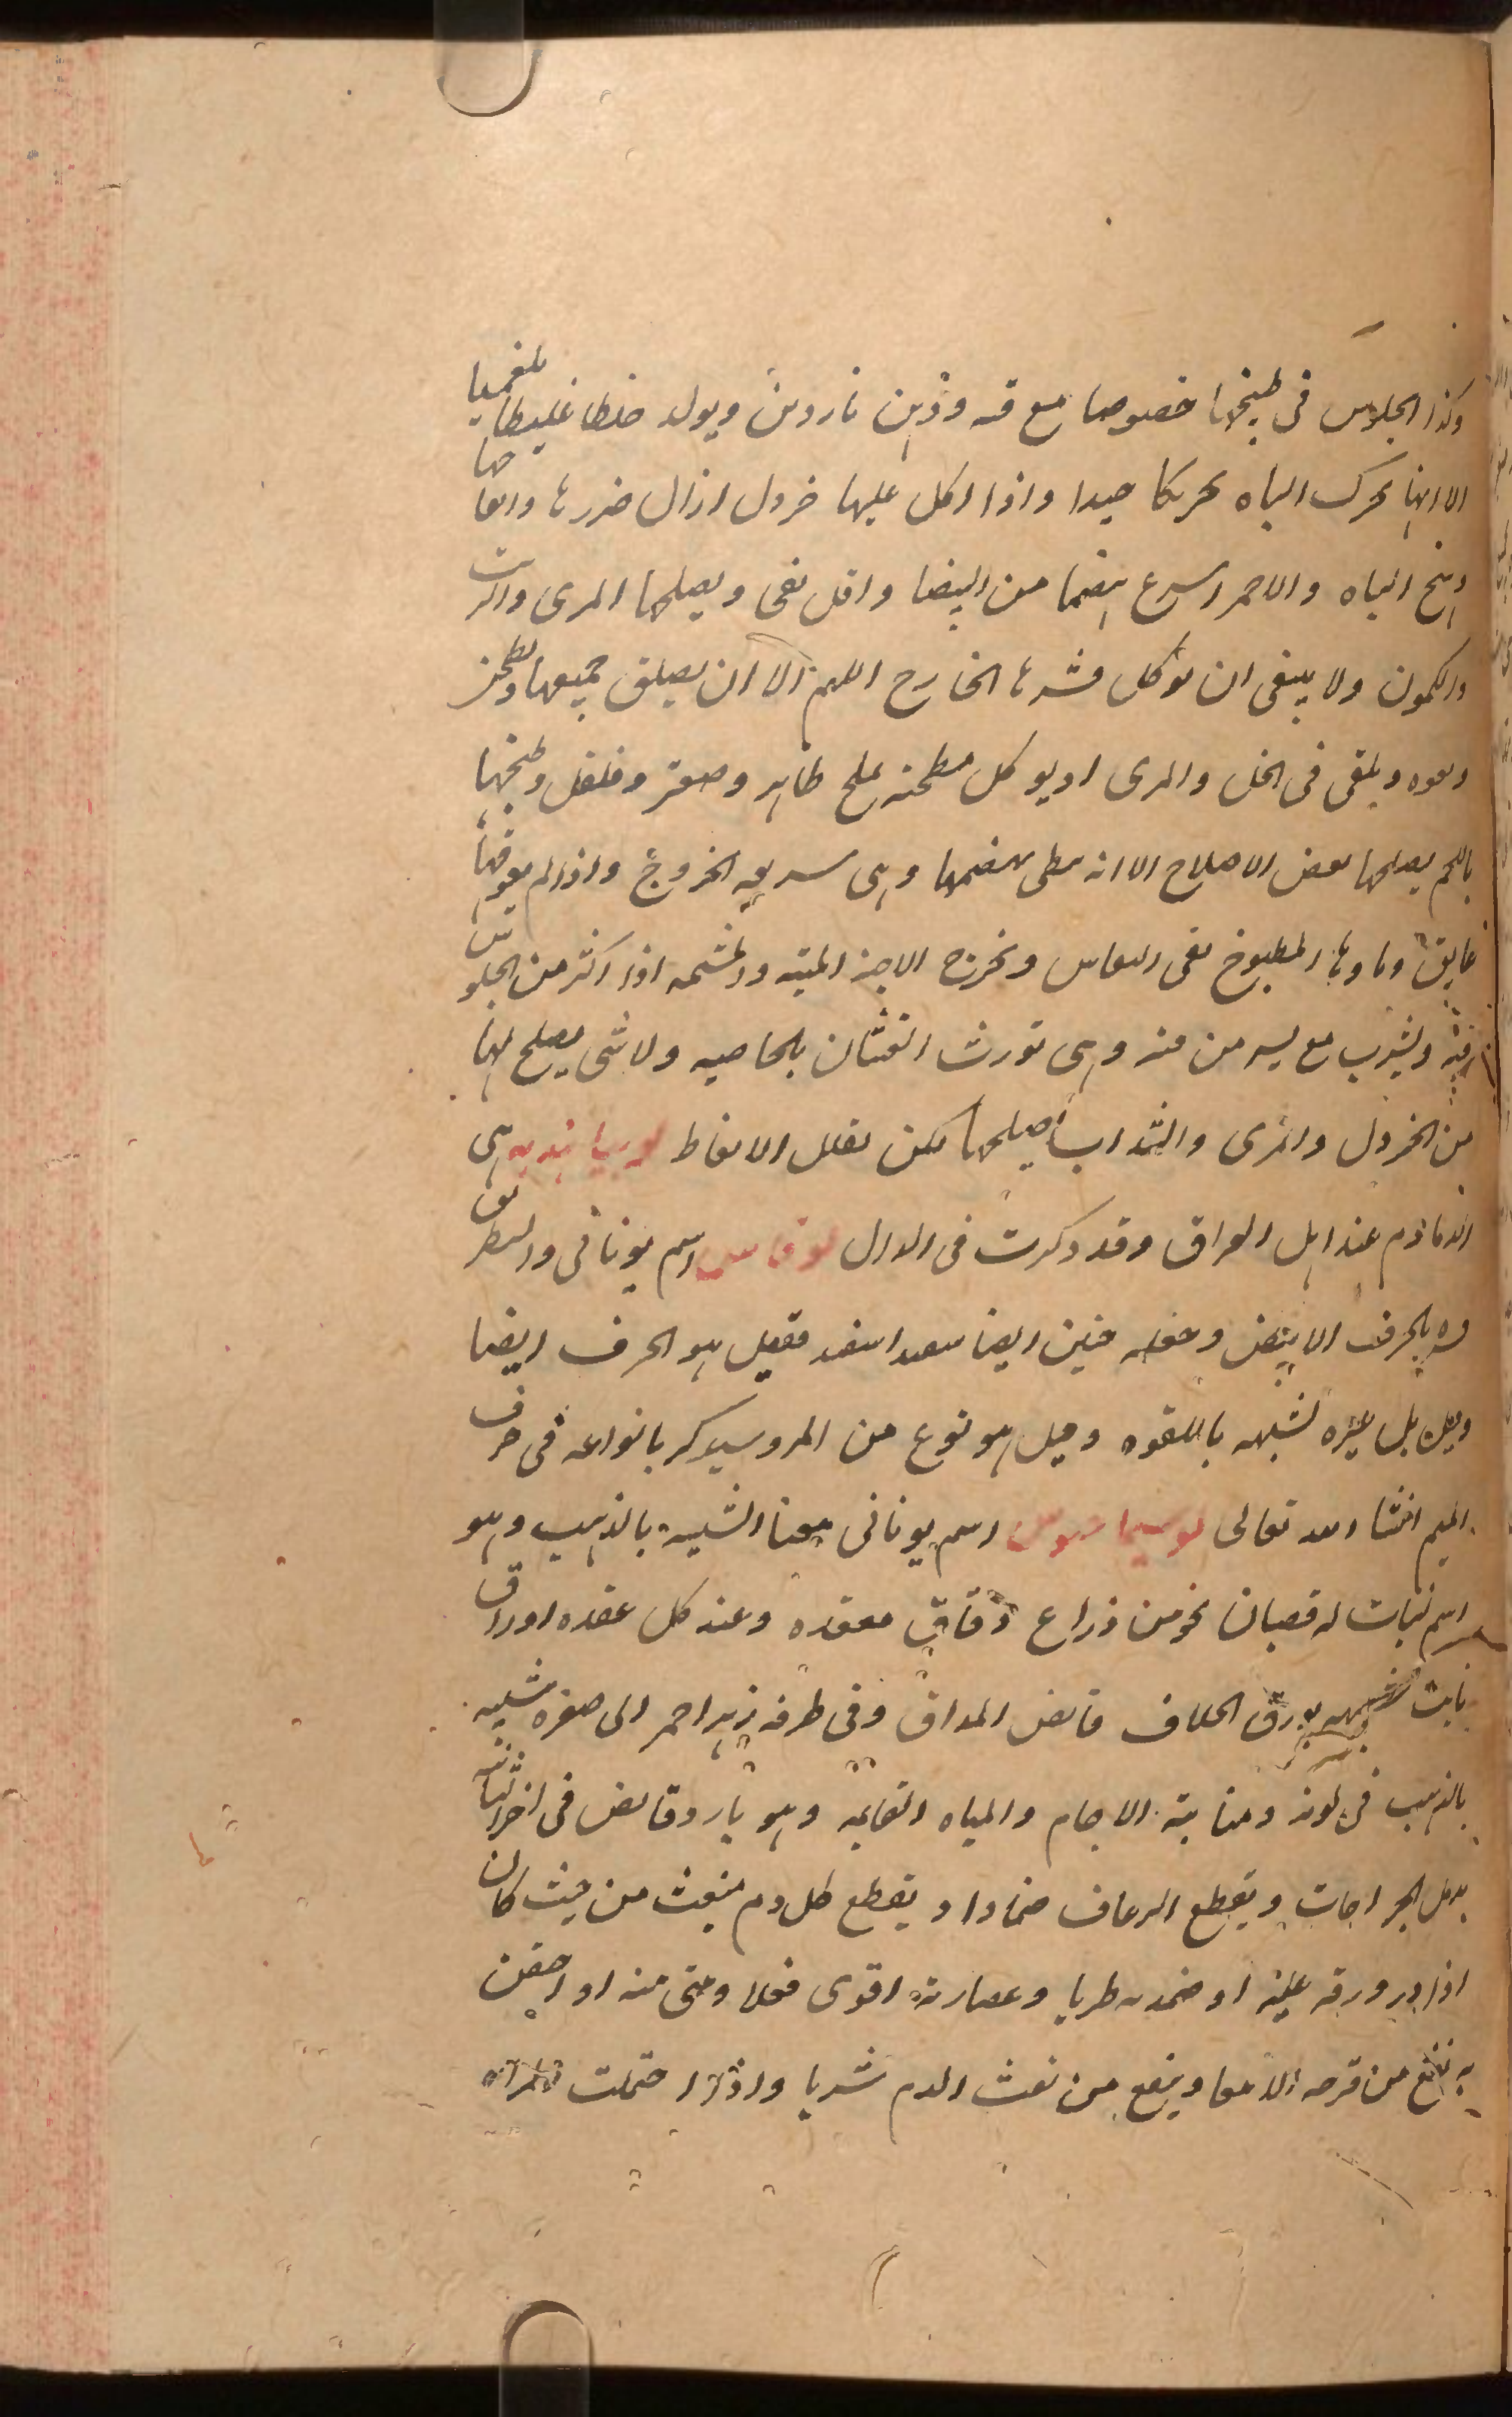 وكذا الجلوس فى طبيخها خصوصا مع قنه ودهن ناردين ويولد خلطا غليظا بلغميا
الا انها تحرك الباه تحريكا جيدا واذا اكل عليها خردل ازال ضررها وانعاضها
وهيج الباه والاحمر اسرع هضما من البيضا واقل نفى ويصلحها المرى والزيت
والكمون ولا ينبغى ان توكل قشرها الخارج اللهم الا ان يصلق جميعها وتطجن
ويلقى فى الخل والمرى او يوكل مطجنه بملح ظاهر وصعتر وفلفل وطبخها
باللحم يصلحها بعض الاصلاح الا انه بطى هضمها وهى سريعه الخروج واذا لم يعوقها
عايق وماوها المطبوخ نقى النفاس وتخرج الاجنه الميته والمشيمه اذا اكثر من الجلوس
فيه ويشرب مع يسير من منه وهى تورث الغثيان بالخاصيه ولا شى يصلح لها
من الخردل والمرى والشراب يصلحها لكن تقلل الانعاظ لوبيا هنديه هى
الدماذم عند اهل العراق وقد ذكرت فى الدال لوقاس اسم يونانى
بالحرف الابيض وجعله حنين ايضا فقيل هو الحرف ايضا
وقيل بل غيره لشبهه بالقوه وقيل هو نوع من المرو سيذكر بانواعه فى حرف
الميم انشا الله تعالى لوسيماخوس اسم يونانى معنا الشبيه بالذهب وهو
اسم لنبات له قضبان نحو من ذراع دقاق معقده وعند كل عقده اوراق
نابت شبيهه بورق الخلاف قابض المذاق وفى طرفه زهر احمر الى صفره شبيه
بالذهب فى لونه ومنابته الاجام والمياه القايمه وهو بارد قابض فى اخر الثانيه
يدمل الجراحات ويقطع الرعاف ضمادا ويقطع كل دم منبعث من حيث كان
اذا ذر ورقه عليه او ضمد به طريا وعصارته اقوى فعلا ومتى منه او احتقن
به نفع من قرحه الامعا وينفع من نفث الدم شربا واذا احتملت المراه